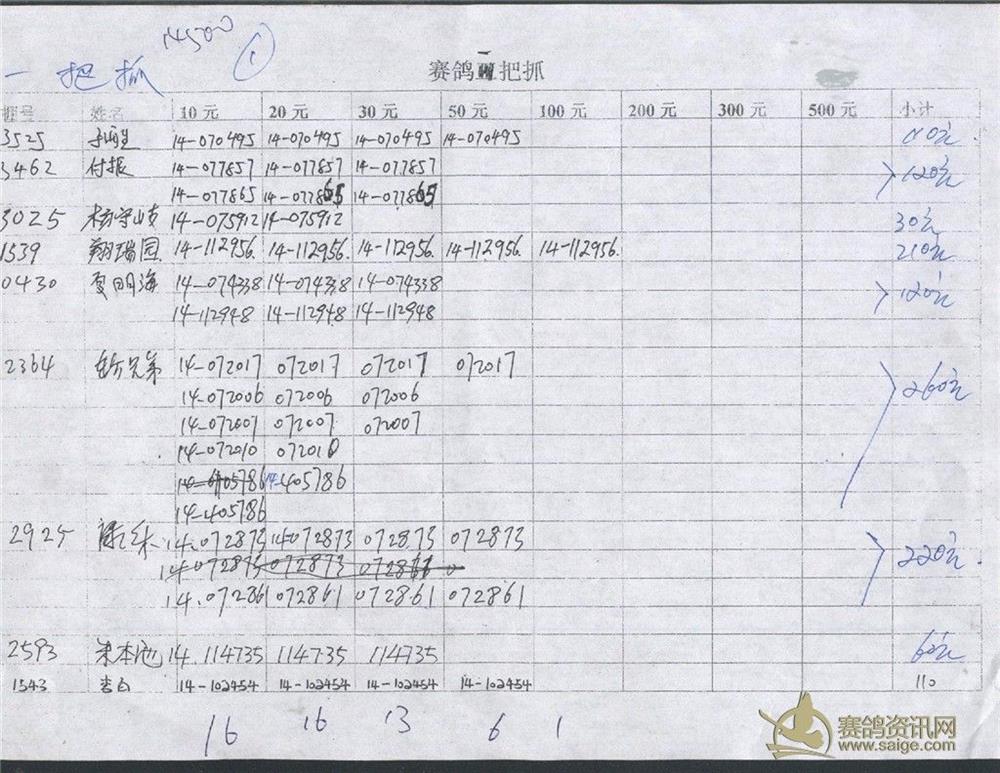 14500 ①
一把抓
赛鸽 把抓
棚号 姓名 10 元 20 元 30 元 50 元 100 元 200 元 300 元 500 元 小计
3525 14-070495 14-070495 14-070495 14-070495
3462 付振 14-077857 14-077857 14-077857 120元
14-077865 14-077865 14-077865
3025 14-075912 14-075912 30元
1539 翔瑞园 14-112956 14-112956 14-112956 14-112956 14-112956 210元
0430 夏明海 14-074338 14-074338 14-074338 120元
14-112948 14-112948 14-112948
2364 岳兄弟 14-072017 072017 072017 072017 260元
14-072006 072006 072006
14-072007 072007 072007
14-072010 072010
14-405786 14-405786
14-405786
2925 14.072873 14072873 072873 072873 220元
14-072873 072873 072861
14.072861 072861 072861 072861
2593 朱本池 14.114735 114735 114735 60元
1543 李白 14-102454 14-102454 14-102454 14-102454 110
16 16 13 6 1
赛鸽资讯网
www.saige.com